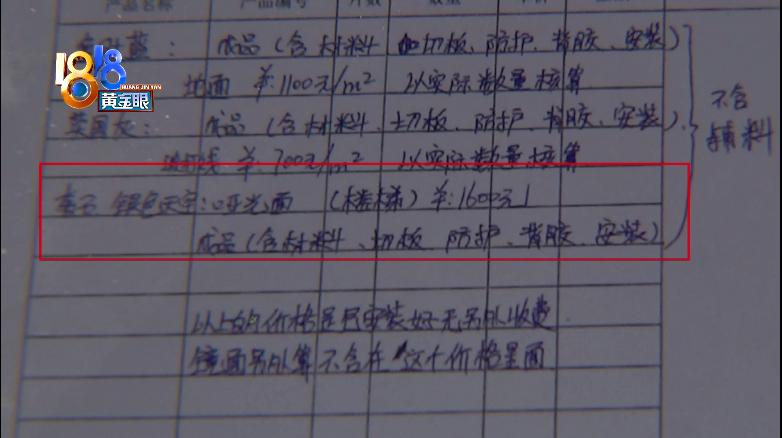 产品名称 产品编号 片数 数量 单价
蓝: 成品(含材料 切板、防护、背胶、安装)
地面 单:1100元/m² 以实际数量核算
英国灰: 成品(含材料、切板、防护、背胶、安装)
线 单:700元/m² 以实际数量核算
不含辅料
银色天宇: 哑光面 (楼梯) 单:1600元
成品(含材料、切板 防护、背胶、安装)
以上的价格是已安装好无另外收费
镜面另外算 不含在 这个价格里面
1818
HUANG JIN YAN
黄金眼